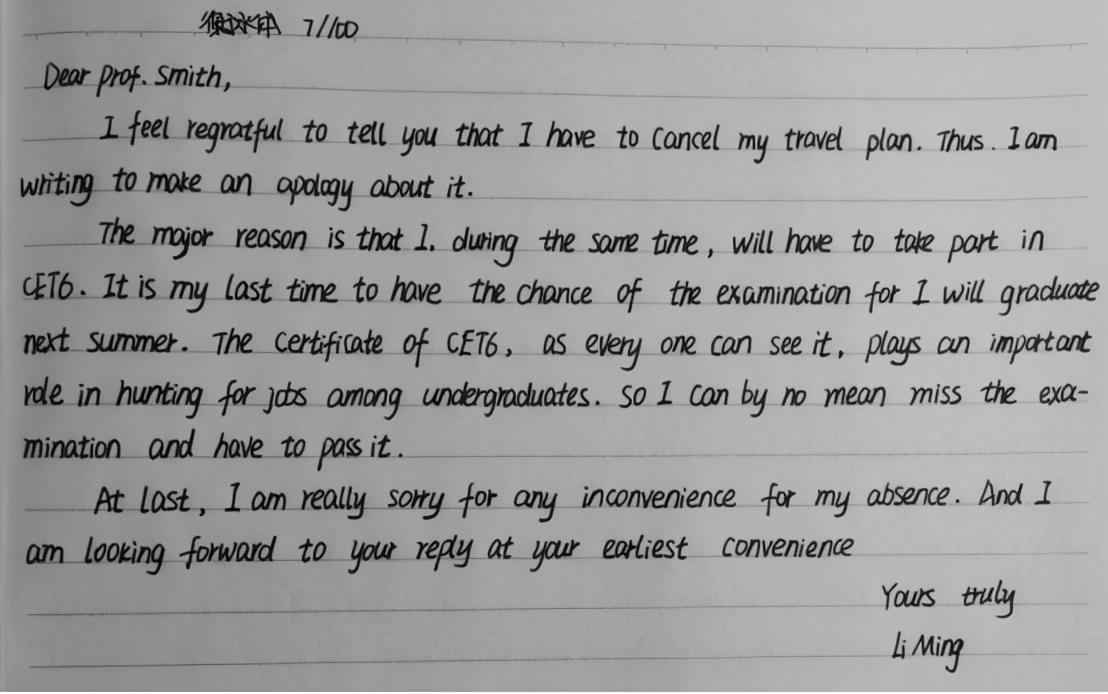 7/100
Dear Prof. Smith,
I feel regratful to tell you that I have to cancel my travel plan. Thus. I am
writing to make an apology about it.
The major reason is that I. during the same time, will have to take part in
CET6. It is my last time to have the chance of the examination for I will graduate
next summer. The certificate of CET6, as every one can see it, plays an important
role in hunting for jobs among undergraduates. So I can by no mean miss the exa-
mination and have to pass it.
At last, I am really sorry for any inconvenience for my absence. And I
am looking forward to your reply at your earliest convenience
Yours truly
Li Ming